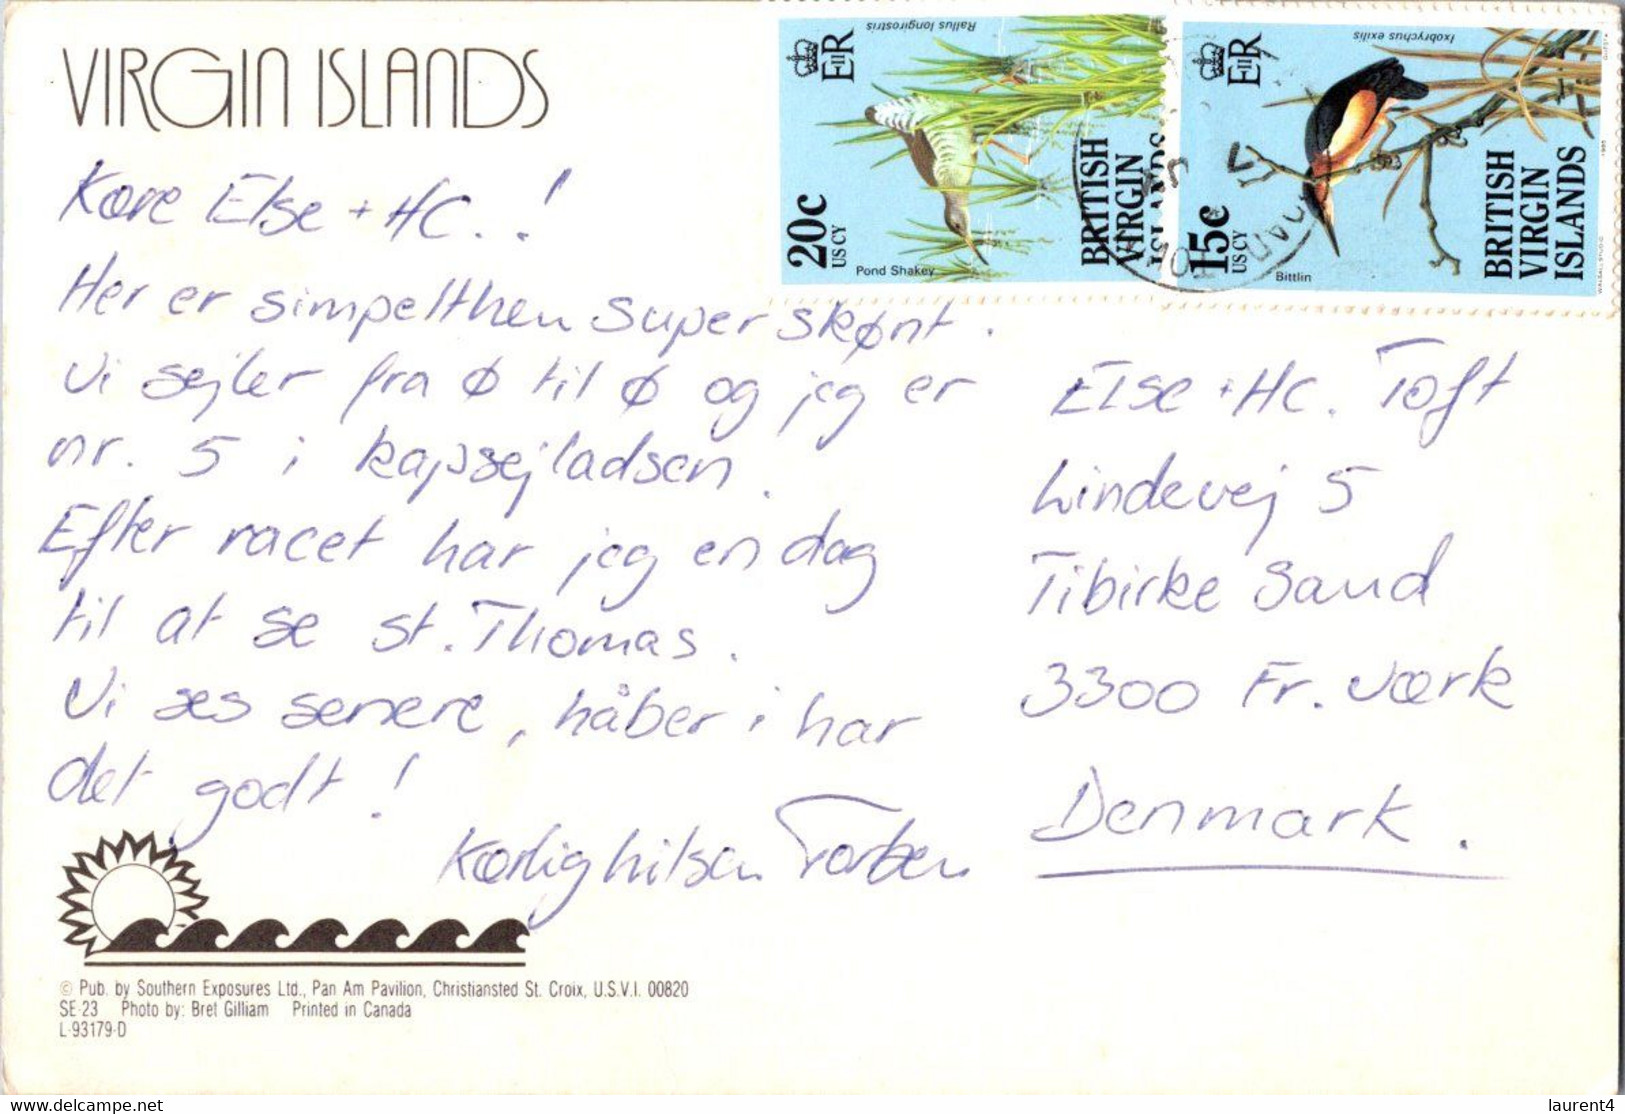 VIRGIN ISLANDS
Kære Else + HC..!
Her er simpelthen super skønt.
Vi sejler fra ø til ø og jeg er
nr. 5 i kapsejladsen.
Efter racet har jeg en dag
til at se st. Thomas.
Vi ses senere, håber i har
det godt!
Kærlig hilsen Torben
© Pub. by Southern Exposures Ltd., Pan Am Pavilion, Christiansted St. Croix, U.S.V.I. 00820
SE-23 Photo by: Bret Gilliam Printed in Canada
L-93179-D
Rallus longirostris
EIIR
20c
US CY
Pond Shakey
BRITISH
VIRGIN
ISLANDS
Ixobrychus exilis
EIIR
15c
US CY
Bittlin
BRITISH
VIRGIN
ISLANDS
1985
Else + HC. Toft
Lindevej 5
Tibirke Sand
3300 Fr. værk
Denmark.
www.delcampe.net
laurent4